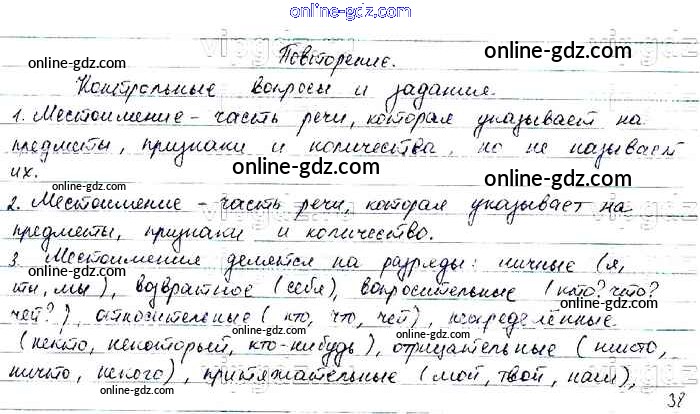 online-gdz.com
Повторение.
online-gdz.com
Контрольные вопросы и задания.
1. Местоимение – часть речи, которая указывает на
online-gdz.com
предметы, признаки и количества, но не называет
их.
online-gdz.com
online-gdz.com
2. Местоимение – часть речи, которая указывает на
предметы, признаки и количество.
online-gdz.com
3. Местоимения делятся на разряды: личные (я,
online-gdz.com
ты, мы), возвратное (себя), вопросительные (кто? что?
чей?), относительные (кто, что, чей), неопределённые
online-gdz.com
online-gdz.com
(некто, некоторый, кто-нибудь), отрицательные (никто,
ничто, некого), притяжательные (мой, твой, наш),
online-gdz.com
38